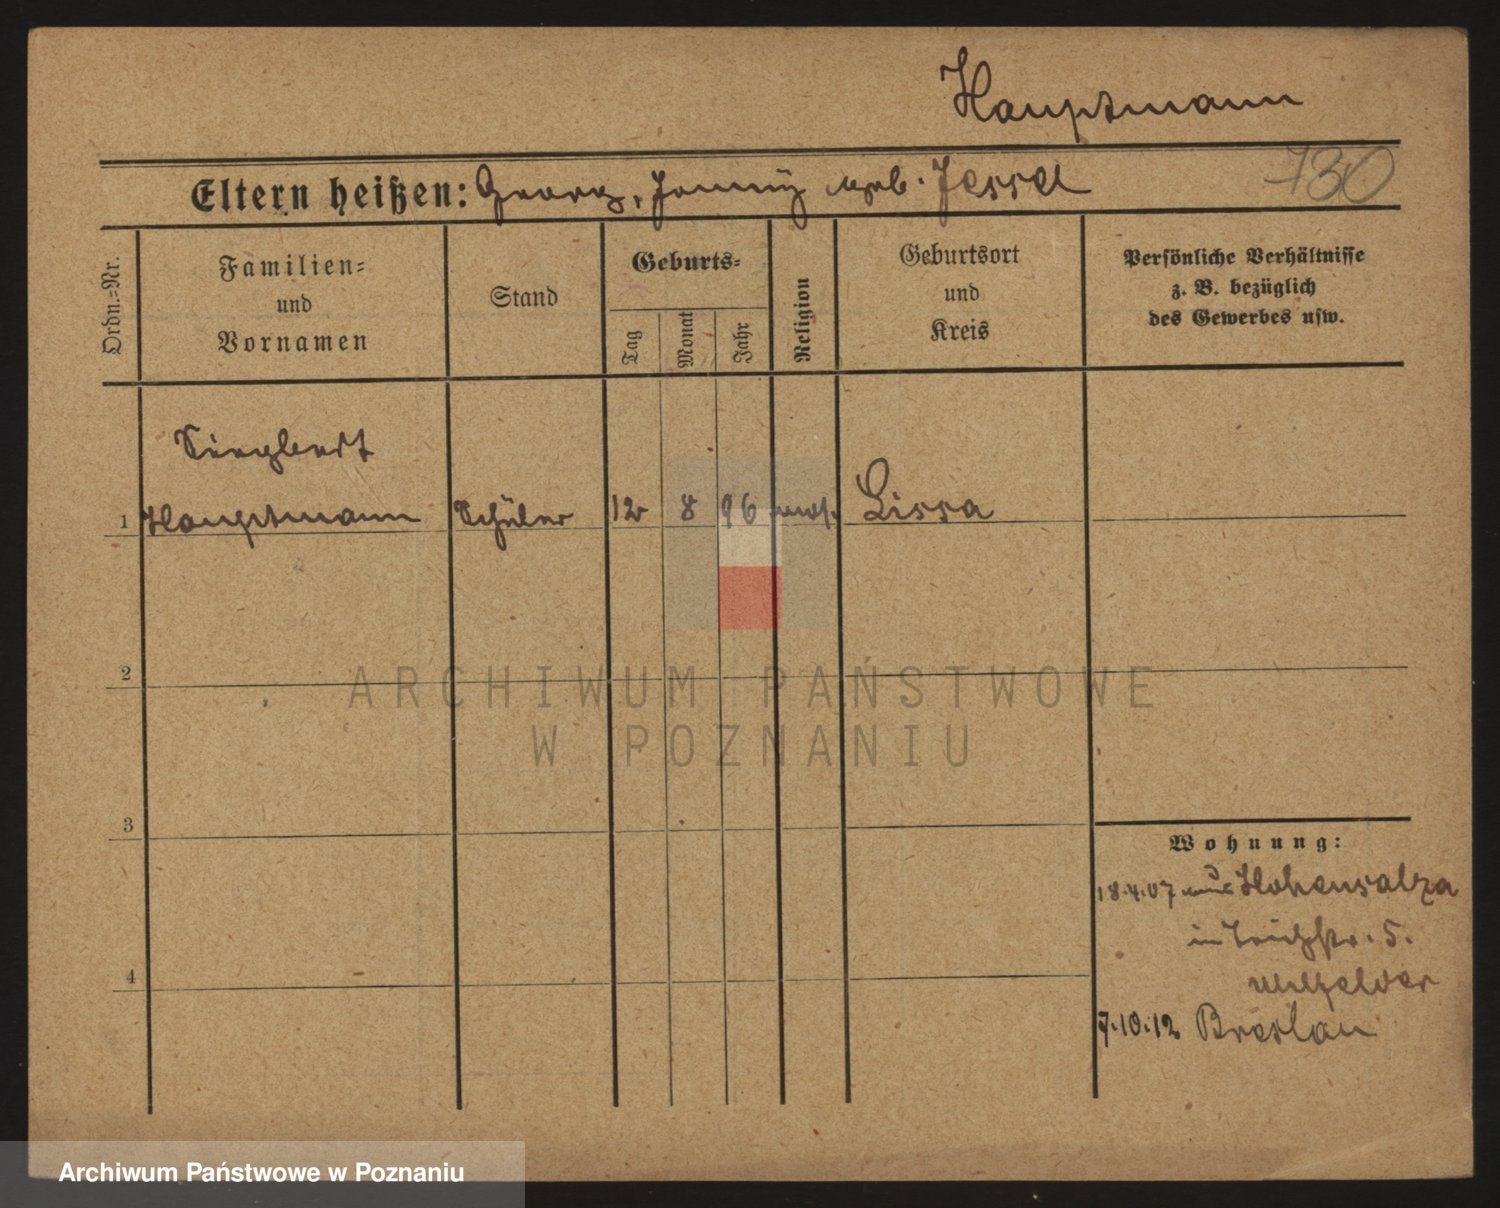 Hauptmann
730
Eltern heißen: Georg, Jenny geb. Jessel
Ordn.-Nr.
Familien-
und
Vornamen
Stand
Geburts-
Tag
Monat
Jahr
Religion
Geburtsort
und
Kreis
Persönliche Verhältnisse
z. B. bezüglich
des Gewerbes usw.
Siegbert
1 Hauptmann Schüler 12 8 96 mos. Lissa
2
ARCHIWUM PAŃSTWOWE
W POZNANIU
3
Wohnung:
18.4.07 aus Hohensalza
in 5.
4
7.10.12 Breslau
Archiwum Państwowe w Poznaniu